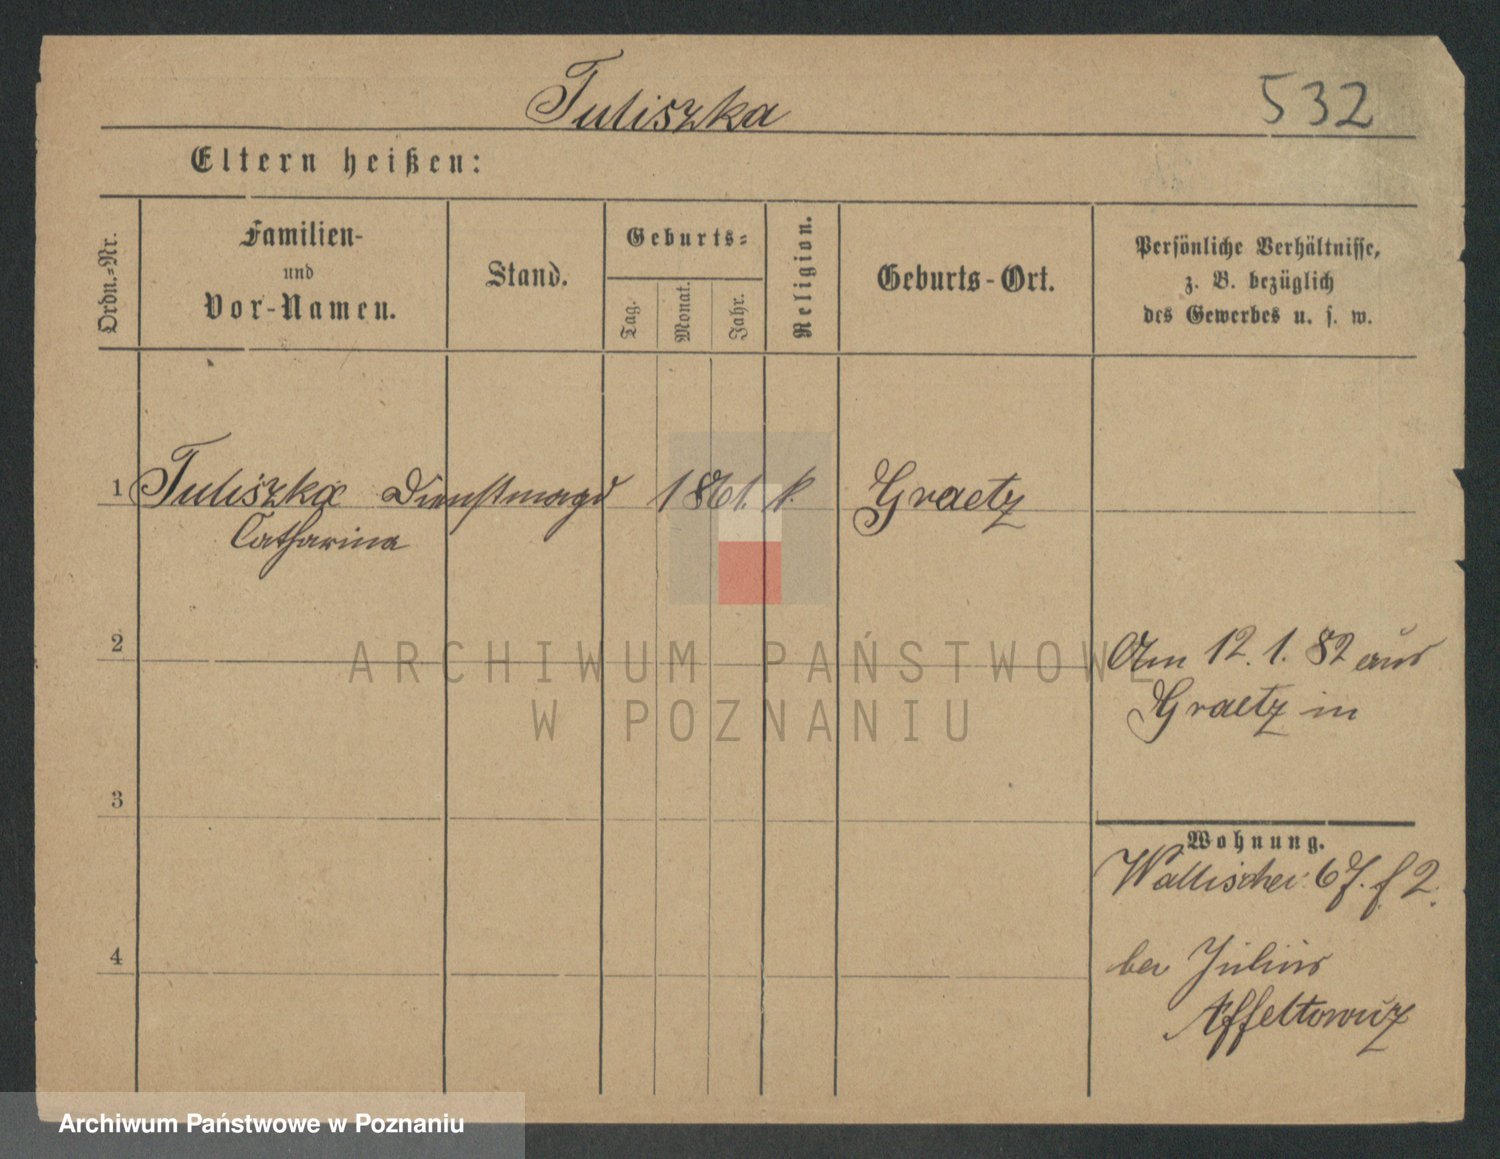 Tuliszka
532
Eltern heißen:
Ordn.-Nr.
Familien-
und
Vor-Namen.
Stand.
Geburts-
Tag.
Monat.
Jahr.
Religion.
Geburts-Ort.
Persönliche Verhältnisse,
z. B. bezüglich
des Gewerbes u. s. w.
1 Tuliszka Dienstmagd 1861. k. Graetz
Catharina
2
Am 12. 1. 82 aus
Graetz in
3
Wohnung.
Wallischei 67. f 2.
4
bei Julius
ARCHIWUM PAŃSTWOWE
W POZNANIU
Archiwum Państwowe w Poznaniu